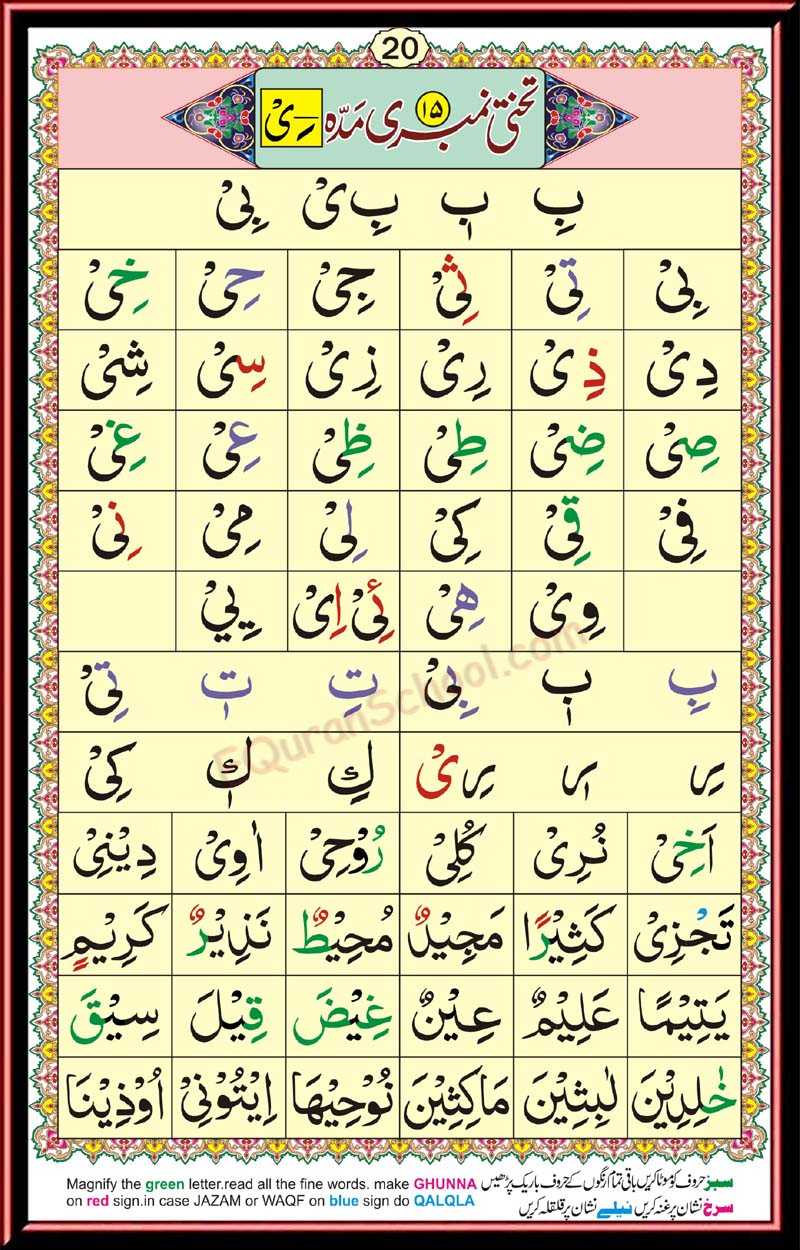 20
تختی نمبر ۱۵ ی مَدّہ ـِیْ
بِ بٖ بِ یْ بِیْ
بِیْ تِیْ ثِیْ جِیْ حِیْ خِیْ
دِیْ ذِیْ رِیْ زِیْ سِیْ شِیْ
صِیْ ضِیْ طِیْ ظِیْ عِیْ غِیْ
فِیْ قِیْ کِیْ لِیْ مِیْ نِیْ
وِیْ هِیْ ئِیْ اِیْ یِيْ
بِ بٖ بِیْ تِ تٖ تِیْ
رِ رٖ رِیْ كِ كٖ کِیْ
اَخِیْ نُرِیْ كُلِیْ رُوْحِیْ اٰوِیْ دِیْنِیْ
تَجْزِیْ كَثِیْرًا مَجِیْدٌ مُحِیْطٌ نَذِیْرٌ كَرِیْمٍ
یَتِیْمًا عَلِیْمٌ عِیْنٌ غِیْضَ قِیْلَ سِیْقَ
خٰلِدِیْنَ لٰبِثِیْنَ مَاكِثِیْنَ نُوْحِیْهَا اِیْتُوْنِیْ اُوْذِیْنَا
EQuranSchool.com
Magnify the green letter.read all the fine words. make GHUNNA
on red sign.in case JAZAM or WAQF on blue sign do QALQLA
سبز حروف کو موٹا کریں باقی تمام رنگوں کے حروف باریک پڑھیں
سرخ نشان پر غنہ کریں نیلے نشان پر قلقلہ کریں